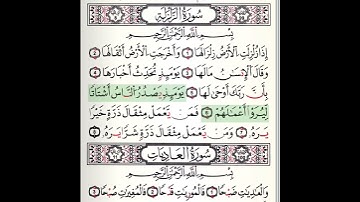 سُورَةُ الزَّلْزَلَةِ
بِسْمِ اللَّهِ الرَّحْمَٰنِ الرَّحِيمِ
إِذَا زُلْزِلَتِ الْأَرْضُ زِلْزَالَهَا ١ وَأَخْرَجَتِ الْأَرْضُ أَثْقَالَهَا ٢
وَقَالَ الْإِنسَانُ مَا لَهَا ٣ يَوْمَئِذٍ تُحَدِّثُ أَخْبَارَهَا ٤
بِأَنَّ رَبَّكَ أَوْحَىٰ لَهَا ٥ يَوْمَئِذٍ يَصْدُرُ النَّاسُ أَشْتَاتًا
لِّيُرَوْا أَعْمَالَهُمْ ٦ فَمَن يَعْمَلْ مِثْقَالَ ذَرَّةٍ خَيْرًا
يَرَهُ ٧ وَمَن يَعْمَلْ مِثْقَالَ ذَرَّةٍ شَرًّا يَرَهُ ٨
سُورَةُ الْعَادِيَاتِ
بِسْمِ اللَّهِ الرَّحْمَٰنِ الرَّحِيمِ
وَالْعَادِيَاتِ ضَبْحًا ١ فَالْمُورِيَاتِ قَدْحًا ٢ فَالْمُغِيرَاتِ صُبْحًا ٣